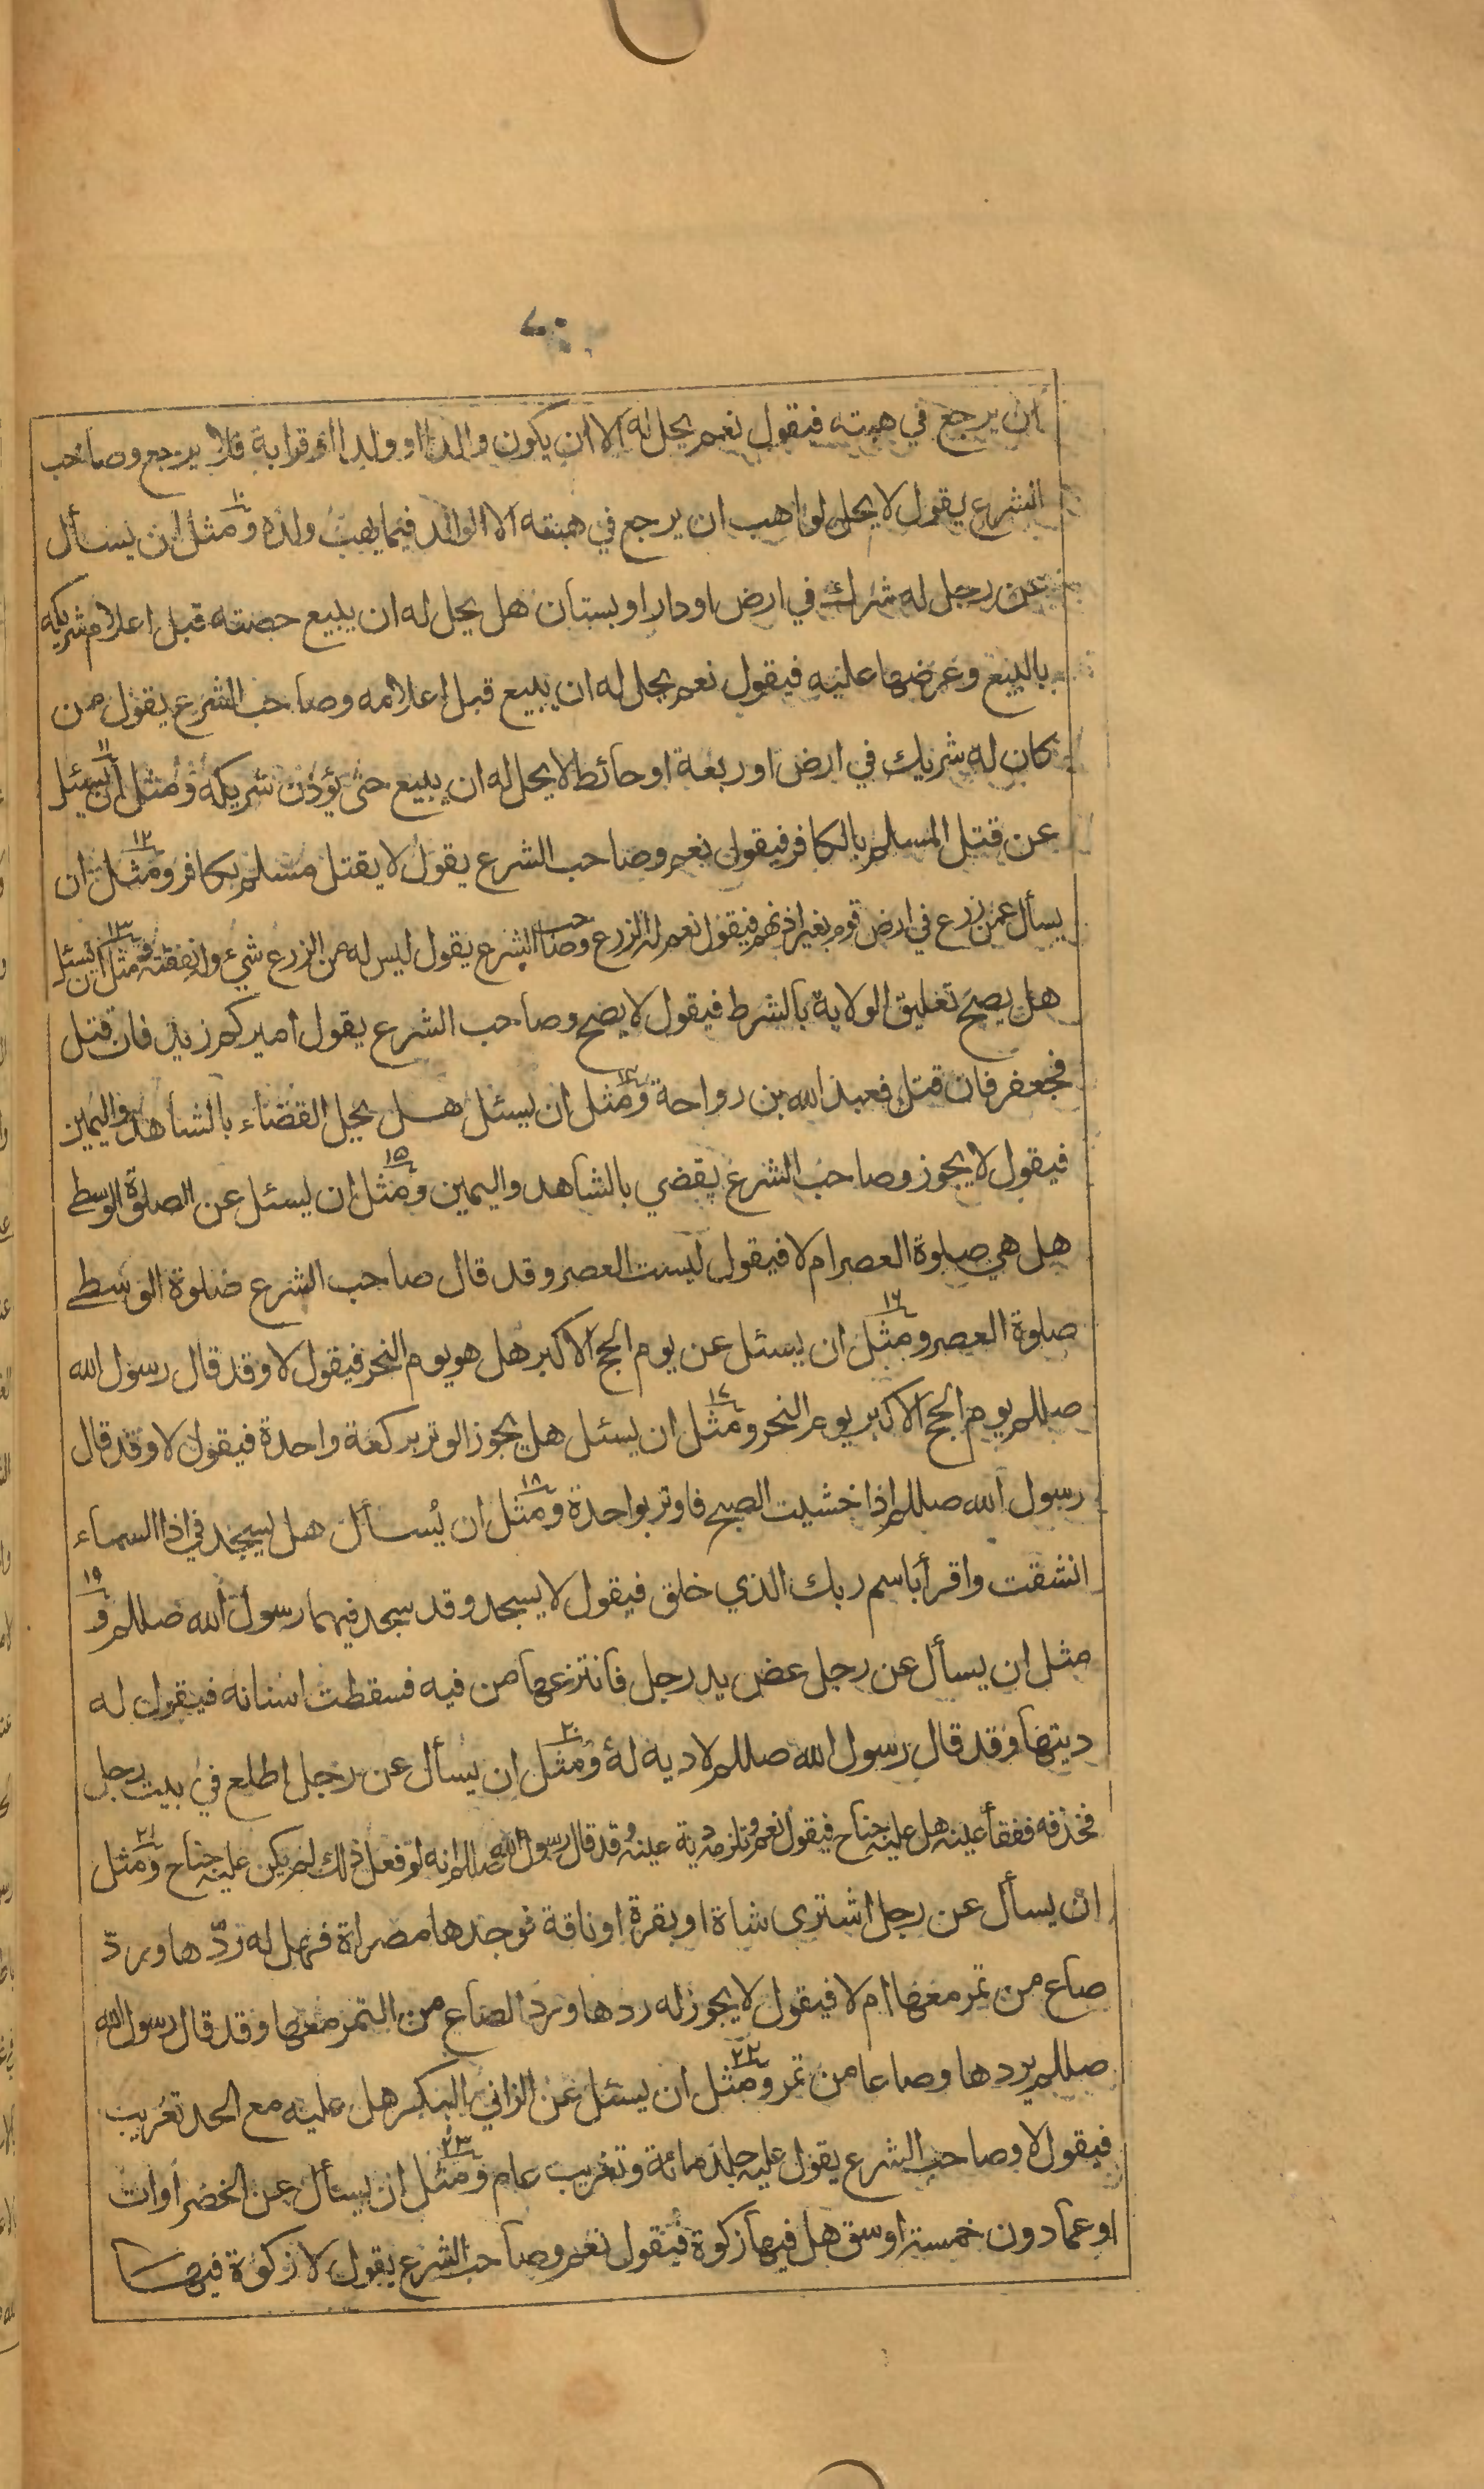 ٧٠
ان يرجع في هبته فيقول نعم يحل له الا ان يكون والدا او ولدا او قرابة فلا يرجع وصاحب
الشرع يقول لا يحل لواهب ان يرجع في هبته الا الوالد فيما يهب ولده ومثل ان يسأل ١٠
عن رجل له شراك في ارض او دار او بستان هل يحل له ان يبيع حصته قبل اعلام شريكه
بالبيع وعرضها عليه فيقول نعم يحل له ان يبيع قبل اعلامه وصاحب الشرع يقول من
كان له شريك في ارض او ربعة او حائط لا يحل له ان يبيع حتى يؤذن شريكه ومثل ان يسئل ١١
عن قتل المسلم بالكافر فيقول نعم وصاحب الشرع يقول لا يقتل مسلم بكافر ومثل ان ١٢
يسأل عمن زرع في ارض قوم بغير اذنهم فيقول نعم له الزرع وصاحب الشرع يقول ليس له من الزرع شيء وله نفقته ومثل ان يسئل ١٣
هل يصح تعليق الولاية بالشرط فيقول لا يصح وصاحب الشرع يقول اميركم زيد فان قتل
فجعفر فان قتل فعبد الله بن رواحة ومثل ان يسئل هل يحل القضاء بالشاهد واليمين ١٤
فيقول لا يجوز وصاحب الشرع يقضي بالشاهد واليمين ومثل ان يسئل عن الصلوة الوسطى ١٥
هل هي صلوة العصر ام لا فيقول ليست العصر وقد قال صاحب الشرع صلوة الوسطى
صلوة العصر ومثل ان يسئل عن يوم الحج الاكبر هل هو يوم النحر فيقول لا وقد قال رسول الله ١٦
صللم يوم الحج الاكبر يوم النحر ومثل ان يسئل هل يجوز الوتر بركعة واحدة فيقول لا وقد قال ١٧
رسول الله صللم اذا خشيت الصبح فاوتر بواحدة ومثل ان يُسأل هل يسجد في اذا السماء ١٨
انشقت واقرأ باسم ربك الذي خلق فيقول لا يسجد وقد سجد فيهما رسول الله صللم و ١٩
مثل ان يسأل عن رجل عض يد رجل فانتزعها من فيه فسقطت اسنانه فيقول له
ديتها وقد قال رسول الله صللم لا دية له ومثل ان يسأل عن رجل اطلع في بيت رجل ٢٠
فخذفه ففقأ عينه هل عليه جناح فيقول نعم وتلزمه دية عينه وقد قال رسول الله صللم انه لو فعل ذلك لم يكن عليه جناح ومثل ٢١
ان يسأل عن رجل اشترى شاة او بقرة او ناقة فوجدها مصراة فهل له ردّها وبردّ
صاع من تمر معها ام لا فيقول لا يجوز له ردها وبرد الصاع من التمر معها وقد قال رسول الله
صللم يردها وصاعا من تمر ومثل ان يسئل عن الزاني البكر هل عليه مع الحد تغريب ٢٢
فيقول لا وصاحب الشرع يقول عليه جلد مائة وتغريب عام ومثل ان يسأل عن الخضراوات ٢٣
او عما دون خمسة اوسق هل فيها زكوة فيقول نعم وصاحب الشرع يقول لا زكوة فيها